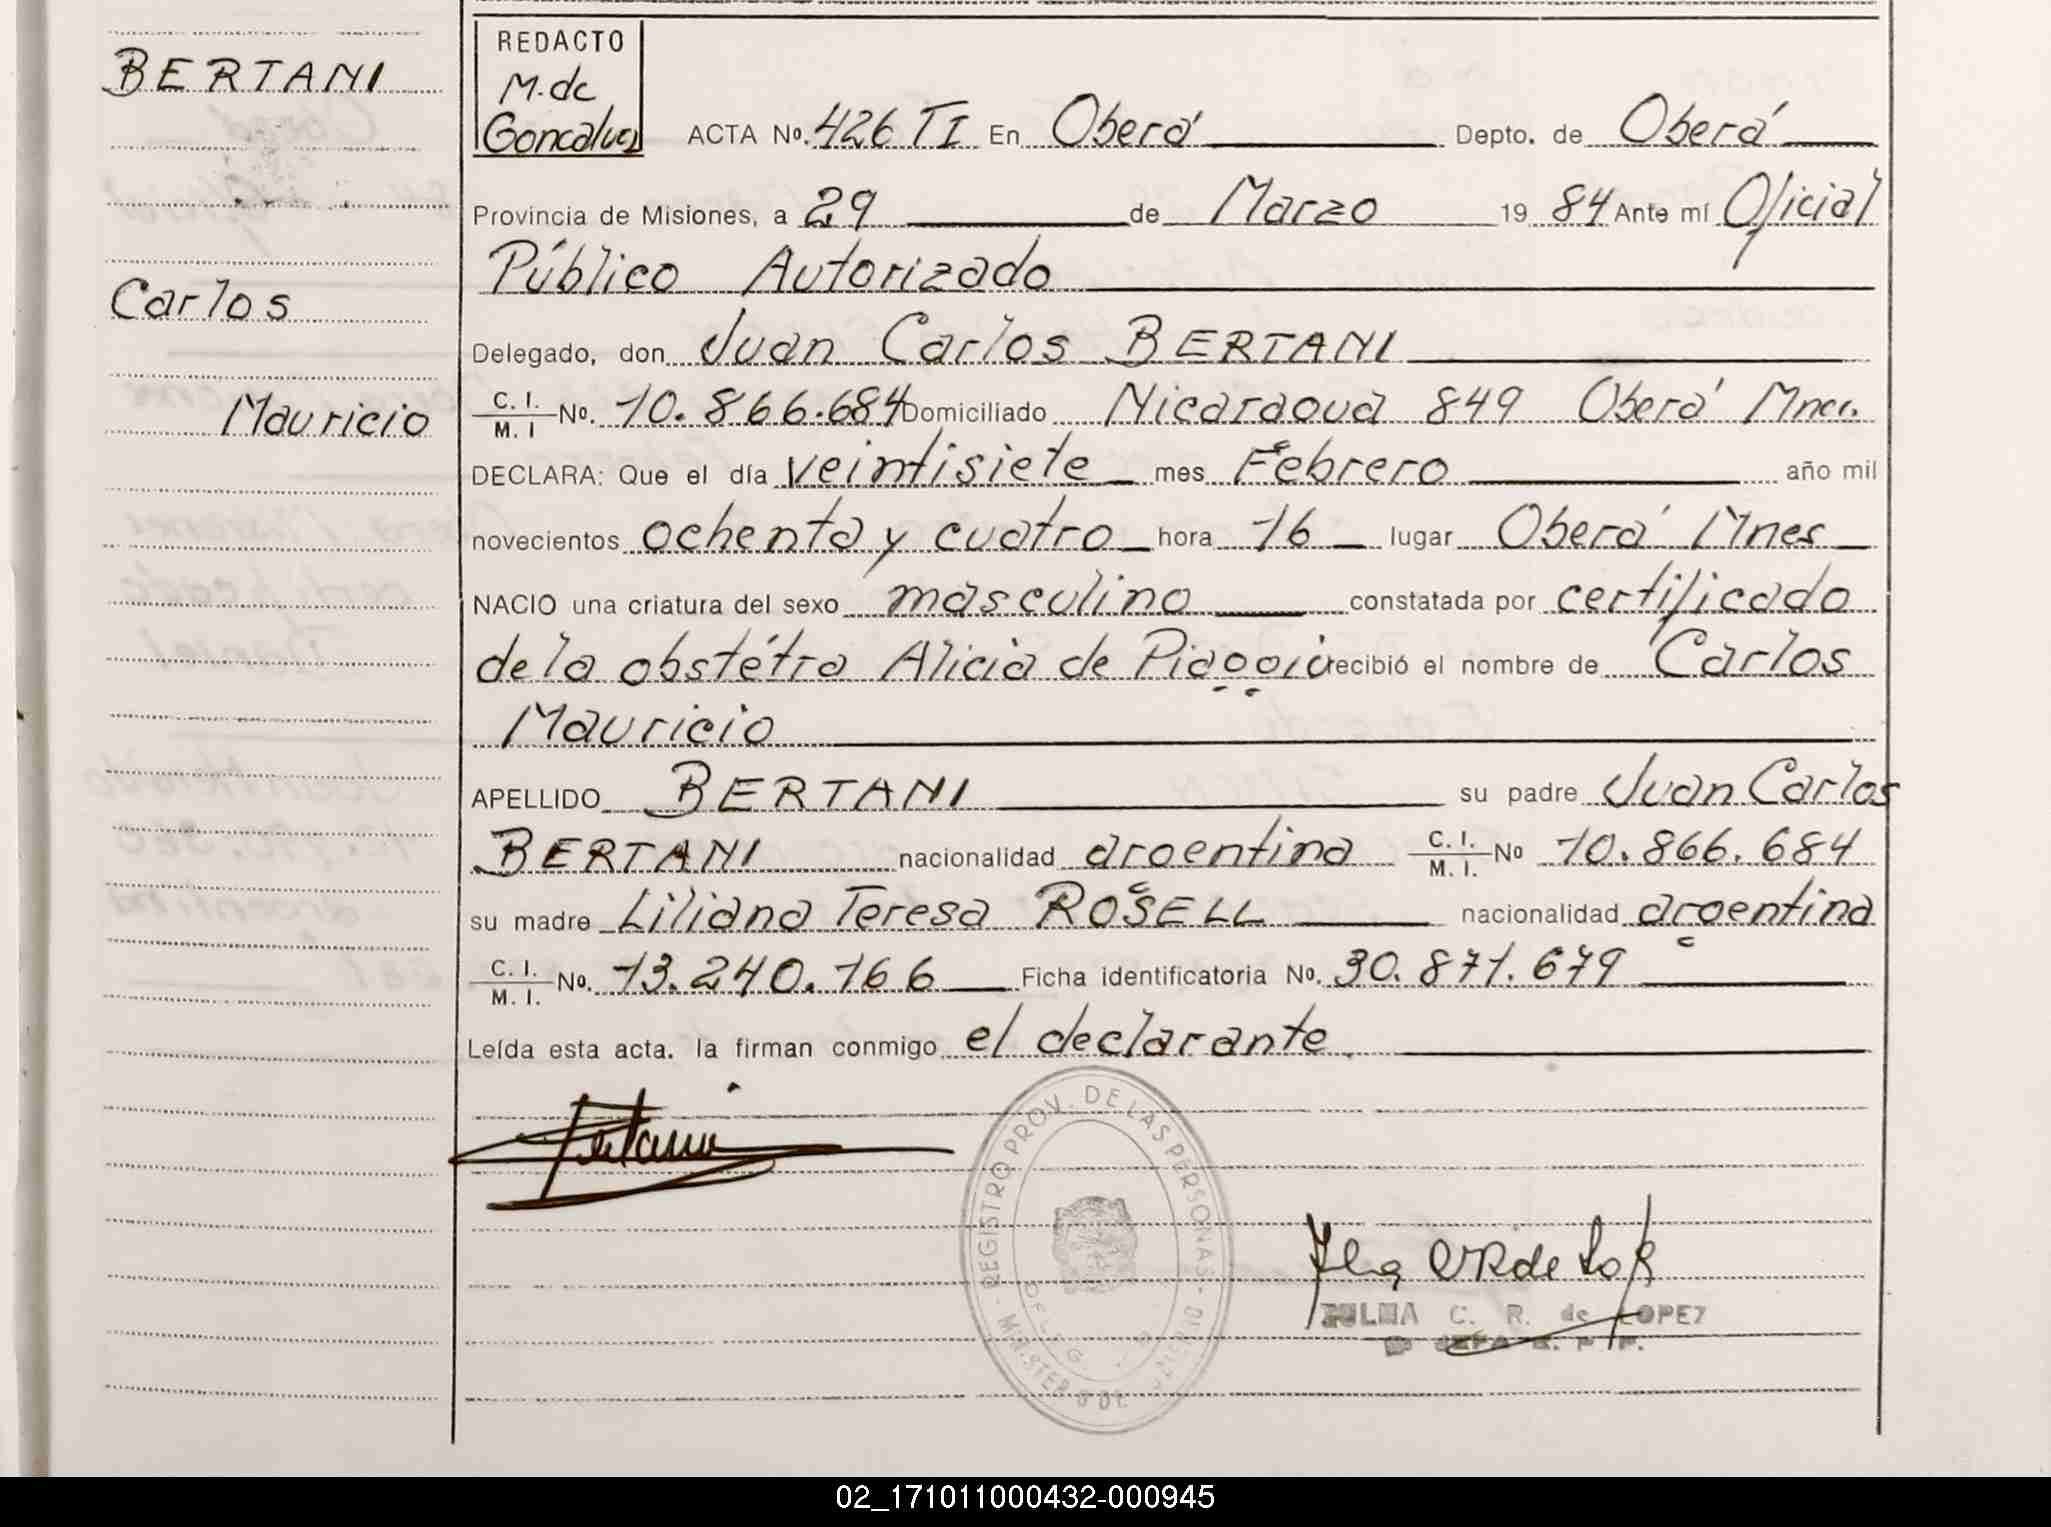 BERTANI
Carlos
Mauricio
REDACTO
M. de
Goncalvez
ACTA Nº. 426 TI En Oberá Depto. de Oberá
Provincia de Misiones, a 29 de Marzo 19 84 Ante mí Oficial
Público Autorizado
Delegado, don Juan Carlos BERTANI
C. I. M. I Nº. 10.866.684 Domiciliado Nicaragua 849 Oberá Mnes.
DECLARA: Que el día veintisiete mes Febrero año mil
novecientos ochenta y cuatro hora 16 lugar Oberá Mnes
NACIO una criatura del sexo masculino constatada por certificado
de la obstétra Alicia de Piaggio recibió el nombre de Carlos
Mauricio
APELLIDO BERTANI su padre Juan Carlos
BERTANI nacionalidad argentina C. I. M. I. Nº 10.866.684
su madre Liliana Teresa ROSELL nacionalidad argentina
C. I. M. I. Nº. 13.240.166 Ficha identificatoria Nº. 30.871.679
Leída esta acta. la firman conmigo el declarante.
Bertani
REGISTRO PROV. DE LAS PERSONAS
C. R. de LOPEZ
02_171011000432-000945